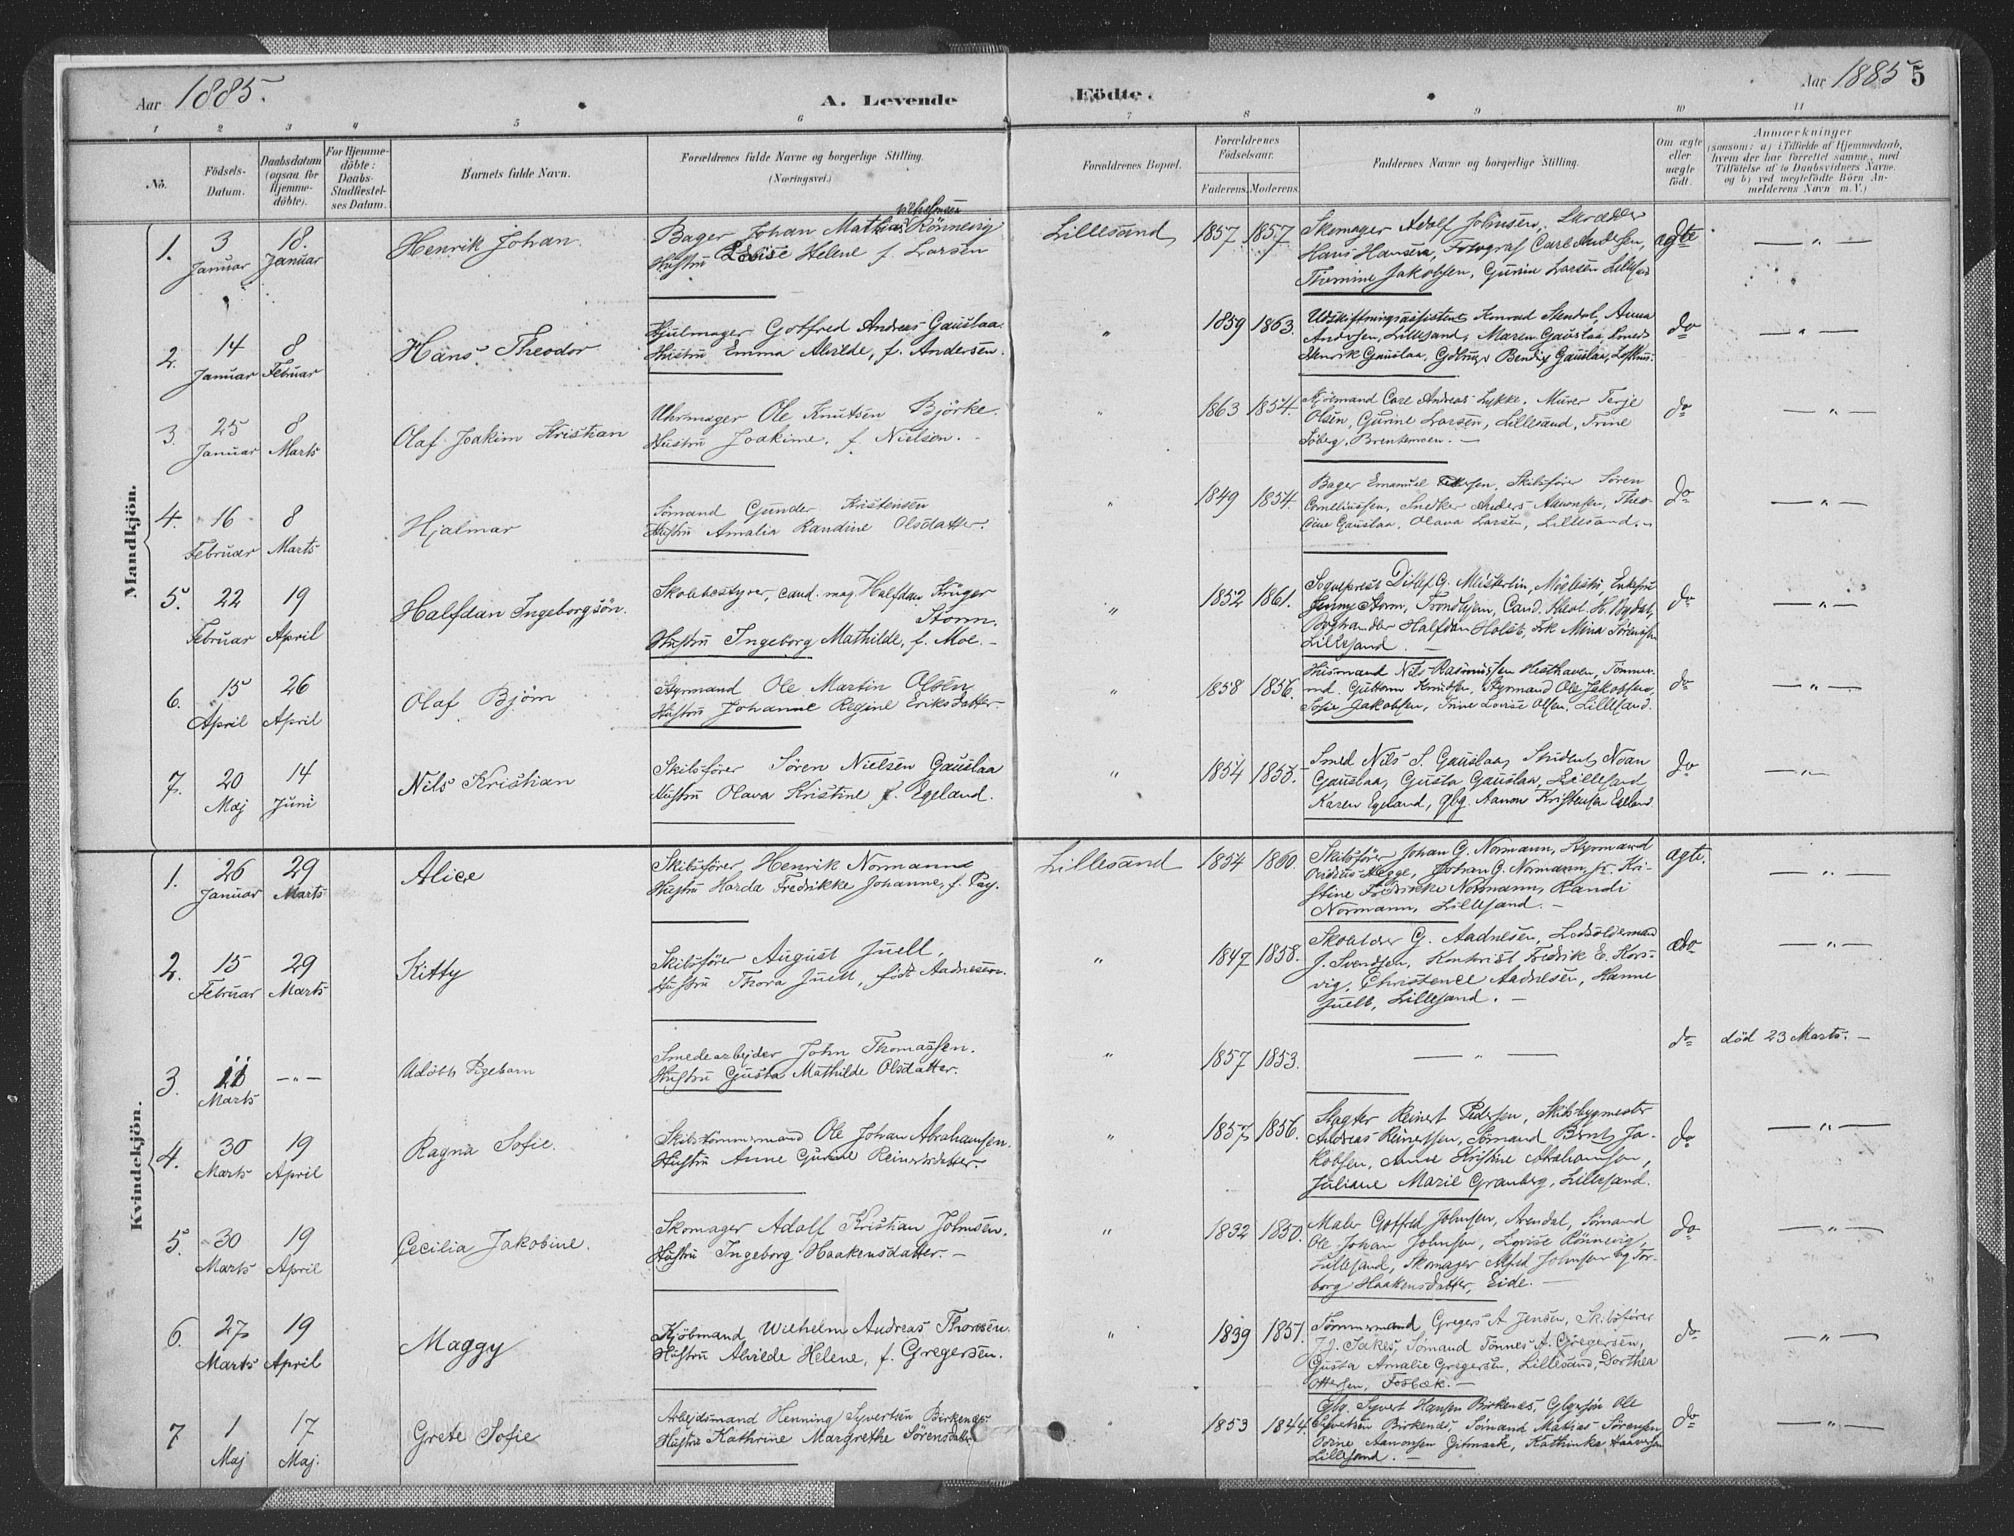 Aar 1885.
A. Levende
Födte.
Aar 1885
5
1 2 3 4 5 6 7 8 9 10 11
No.
Födsels-
Datum.
Daabsdatum
(ogsaa for
Hjemme-
döbte).
For Hjemme-
döbte:
Daabs-
Stadfæstel-
ses Datum.
Barnets fulde Navn.
Forældrenes fulde Navne og borgerlige Stilling.
(Næringsvei.)
Forældrenes Bopæl.
Forældrenes
Födselsaar.
Faderens. Moderens.
Faddernes Navne og borgerlige Stilling.
Om ægte
eller
uægte
födt.
Anmærkninger
(saasom: a) i Tilfælde af Hjemmedaab,
hvem der har forrettet samme, med
Tilföielse af to Daabsvidners Navne.
og b) ved uægtefödte Börn An-
melderens Navn m. V.)
Mandkjön.
1. 3 Januar 18. Januar
Henrik Johan.
Bager Johan Mathias Rönnevig
Hustru Lovise Helene f. Larsen
Lillesand
1857 1857
Skomager Adolf Johnsen, Skrædder
Hans Hansen, Fotograf Carl Andersen,
Jakobsen, Gurine Larsen Lillesand
ægte
— " —
2. 14 Januar 8 Februar
Hans Theodor
Hjulmager Gotfred Andreas Gauslaa.
Hustru Emma Alvilde, f. Andersen.
"
1859 1863.
Udskiftningsassistent Konrad Stendal, Anna
Andersen, Lillesand, Maren Gauslaa, Smed
Henrik Gauslaa, Bendix Gauslaa,
do
— " —
3. 25 Januar 8 Marts
Olaf Joakim Kristian
Uhrmager Ole Knutsen Björke.
Hustru Joakime, f. Nielsen. -
"
1863 1854.
Kjöbmand Carl Andreas Lykke, Murer Terje
Olsen, Gurine Larsen, Lillesand, Trine
Söberg, Brentemoen. —
do
— " —
4. 16 Februar 8 Marts
Hjalmar
Sömand Gunder Kristensen
Hustru Amalia Randine Olsdatter.
"
1849 1854.
Bager Emanuel Skibsförer Sören
Corneliussen, Snedker Anders Aanonsen, Theo-
Gauslaa, Olava Larsen, Lillesand. -
do
— " —
5. 22 Februar 19 April
Halfdan Ingeborgsön.
Skolebestyrer, cand. mag. Halfdan Krüger
Storm.
Hustru Ingeborg Mathilde, f. Moe. -
"
1852 1861.
Sogneprest Ditlef G. Meisterlin, Möglestu, Enkefru
Jenny Storm, Trondhjem, Cand. theol. H.
Boghandler Halfdan Holst, Frk Mina Sörensen
Lillesand. —
do
— " —
6. 15 April 26 April
Olaf Björn
Styrmand Ole Martin Olsen
Hustru Johanne Regine Eriksdatter.
"
1858 1856.
Husmand Nils Rasmussen Hesthaven, Tömmer-
md. Guttorm Knudsen, Styrmand Ole Jakobsen,
Sofie Jakobsen, Trine Lovise Olsen, Lillesand.
do
— " —
7. 20 Maj 14 Juni
Nils Kristian
Skibsförer Sören Nielsen Gauslaa
Hustru Olava Kristine f. Egeland.
"
1854 1855.
Smed Nils S. Gauslaa, Student Noan
Gauslaa, Gusta Gauslaa, Lillesand
Karen Egeland, Gbg. Aanon Kristensen Egeland
do
— " —
Kvindekjön.
1. 26 Januar 29 Marts
Alice
Skibsförer Henrik Normann
Hustru Harda Fredrikke Johanne, f. Pay.
Lillesand
1854 1860.
Skibsförer Johan G. Normann, Styrmand
Ovidius Hegge, Johan G. Normann jr. Kri-
stine Fredrikke Normann, Randi
Normann, Lillesand. —
ægte.
— " —
2. 15 Februar 29 Marts
Kitty
Skibsförer August Juell,
Hustru Thora Juell, född Aadnesen.
"
1847 1858.
Skolelder G. Aadnesen, Lodsoldermand
J. Svendsen, Kontorist Fredrik E. Kors-
vig, Christence Aadnesen, Hanne
Juell, Lillesand. —
do
— " —
3. 11 Marts — " —
Udöbt Pigebarn
Smedearbejder John Thomassen.
Hustru Gusta Mathilde Olsdatter.
"
1857 1853.
— " —
do
död 23 Marts. —
4. 30 Marts 19 April
Ragna Sofie.
Skibstömmermand Ole Johan Abrahamsen.
Hustru Anne Gurine Reinertsdatter.
"
1857 1856.
Slagter Reinert Pedersen, Skibsbygmester
Andreas Reinertsen, Sömand Bernt Ja-
kobsen, Anne Kristine Abrahamsen,
Juliane Marie Granberg, Lillesand.
do
— " —
5. 30 Marts 19 April
Cecilia Jakobine.
Skomager Adolf Kristian Johnsen.
Hustru Ingeborg Haakensdatter. —
"
1832 1850.
Maler Gotfred Johnsen, Arendal, Sömand
Ole Johan Johnsen, Lovise Rönnevig,
Lillesand, Skomager Alfred Johnsen og Tor-
borg Haakensdatter, Eide. —
do
— " —
6. 27 Marts 19 April
Maggy
Kjöbmand Wilhelm Andreas Thorsen.
Hustru Alvilde Helene, f. Gregersen.
"
1839 1851.
Tömmermand Gregers A Jensen, Skibsförer
J. J. Sakes, Sömand Tönnes A. Gregersen,
Gusta Amalie Gregersen, Lillesand, Dorthea
Ottersen, Fosbæk. —
do
— " —
7 1 Maj 17 Maj.
Grete Sofie
Arbejdsmand Henning Syvertsen Birkenes
Hustru Kathrine Margrethe Sörensdatter
"
1853 1844.
Gbg. Syvert Hansen Birkenes, Gbgrsön Ole
Syvertsen Birkenes, Sömand Mathias Sörensen
Odine Aanonsen Gitmark, Kathinka
Lillesand. —
do
— " —